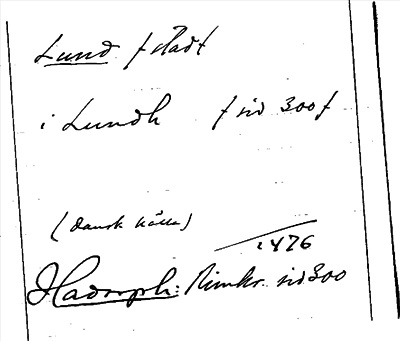 Lund f stadt
i Lundh f sid 300 f
(dansk källa)
1476
Hadorph: Rimkr. sid 300